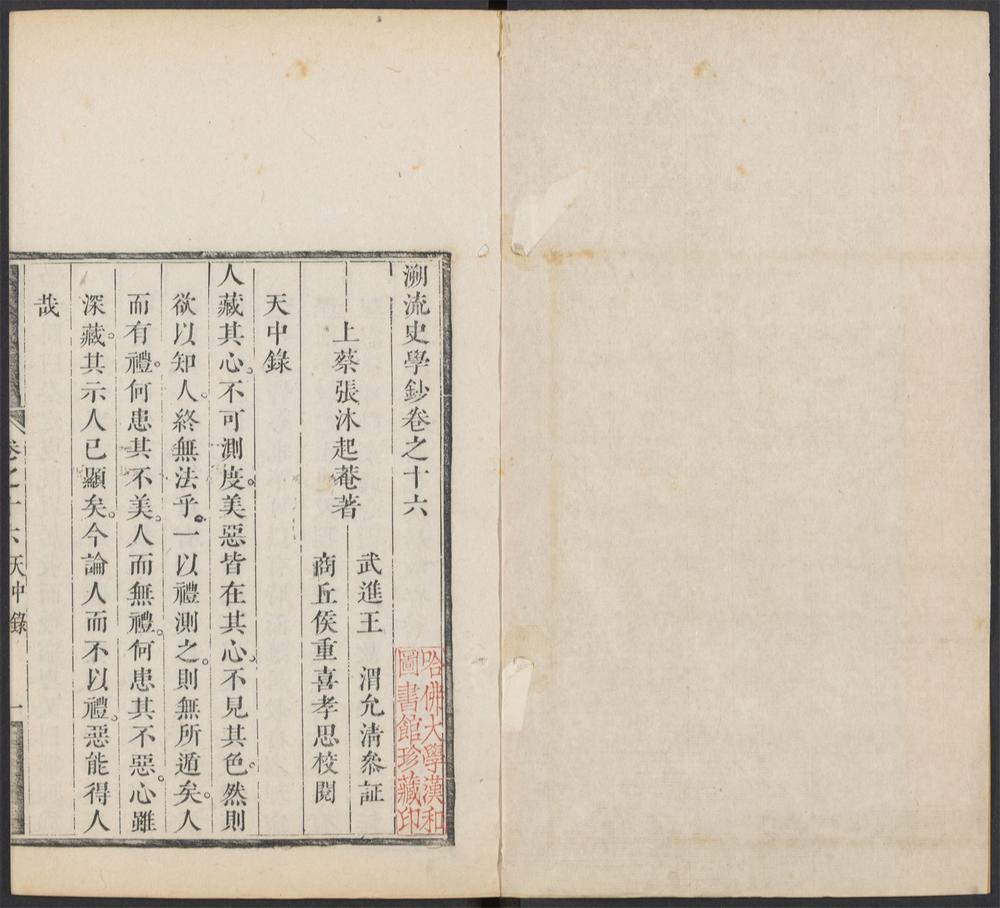 溯流史學鈔卷之十六
上蔡張沐起菴著
武進王 渭允清叅証
商丘侯重喜孝思校閱
天中錄
人藏其心。不可測度。美惡皆在其心。不見其色。然則
欲以知人。終無法乎。一以禮測之。則無所遁矣。人
而有禮。何患其不美。人而無禮。何患其不惡。心雖
深藏。其示人已顯矣。今論人而不以禮。惡能得人
哉
卷之十六 天中錄 一
哈佛大學漢和
圖書館珍藏印